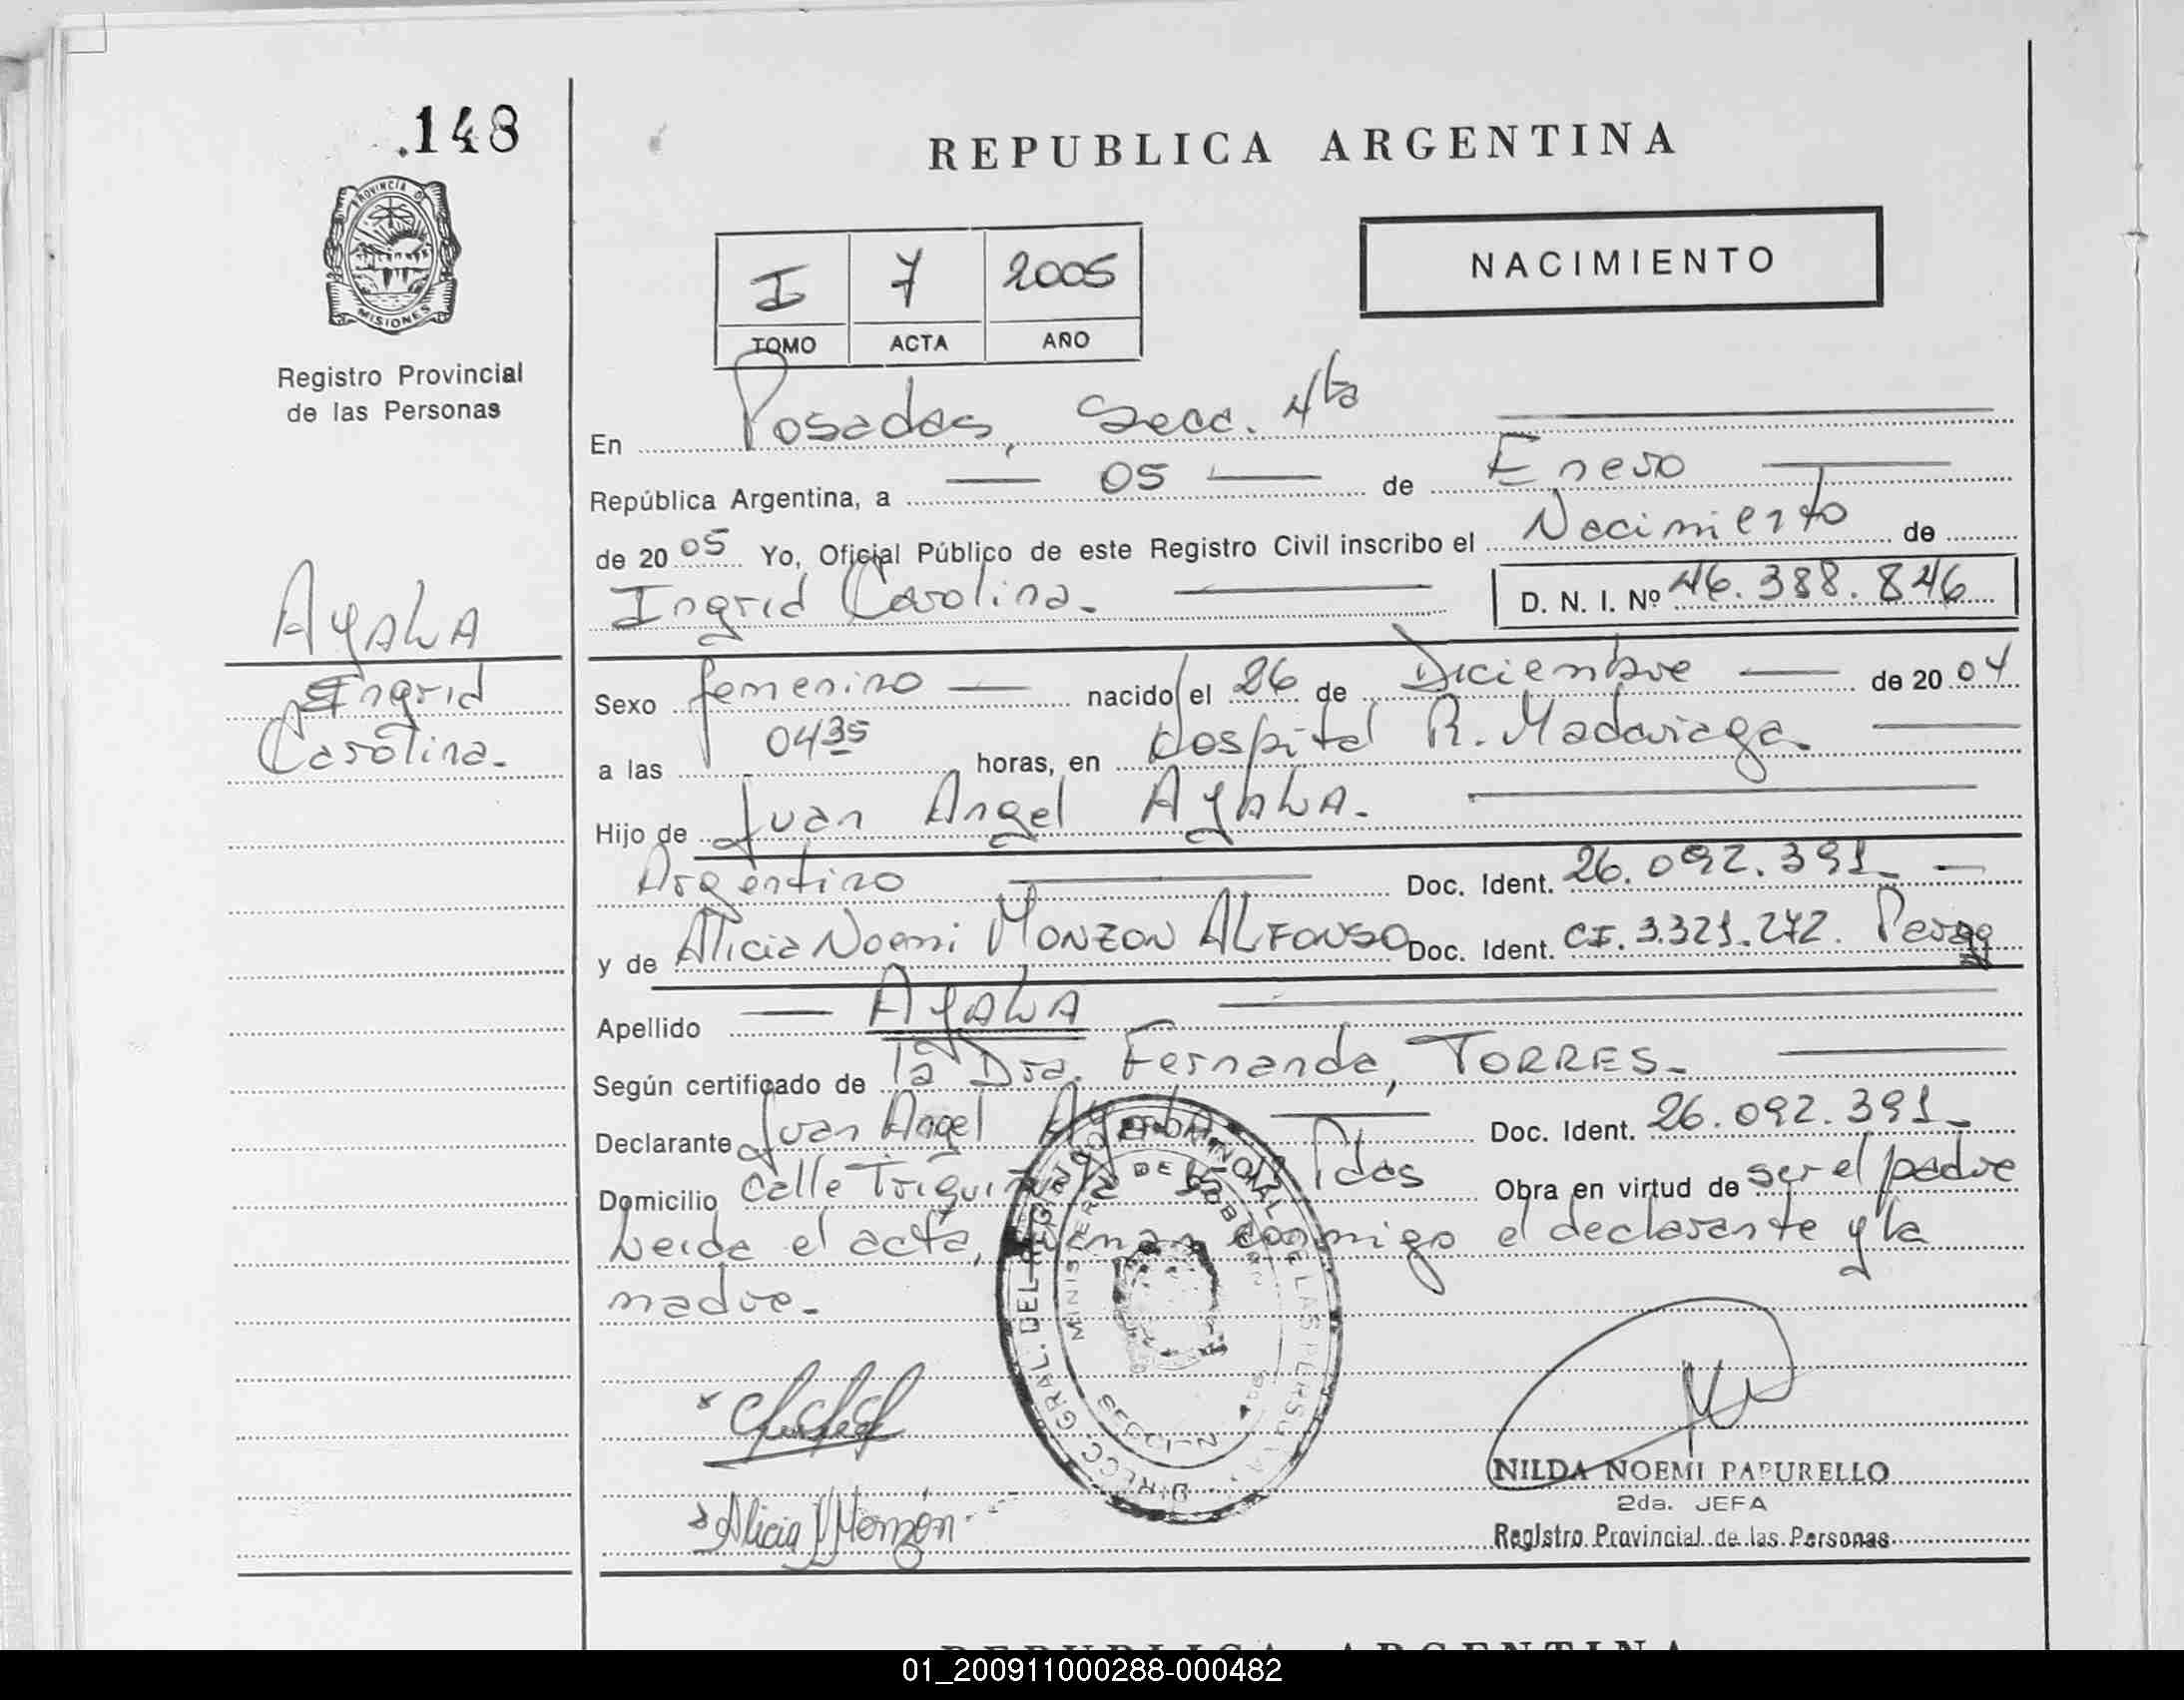 .148
REPUBLICA ARGENTINA
PROVINCIA DE
MISIONES
Registro Provincial
de las Personas
I 7 2005
TOMO ACTA AÑO
NACIMIENTO
En Posadas, Secc. 4ta
República Argentina, a 05 de Enero
de 2005 Yo, Oficial Público de este Registro Civil inscribo el Nacimiento de
Ingrid Carolina. D. N. I. Nº 46.388.846
AYALA
Ingrid
Carolina.
Sexo femenino nacido el 26 de Diciembre de 2004
a las 0435 horas, en Hospital R. Madariaga.
Hijo de Juan Angel AYALA.
Argentino Doc. Ident. 26.092.391
y de Alicia Noemi MONZON ALFONSO Doc. Ident. CI. 3.321.272.
Apellido AYALA
Según certificado de la Dra. Fernanda, TORRES
Declarante Juan Angel Ayala Doc. Ident. 26.092.391
Domicilio Calle Pdas Obra en virtud de ser el padre
Leida el acta, firman conmigo el declarante y la
madre.
DIRECC. GRAL. DEL REGISTRO PROVINCIAL DE LAS PERSONAS
MINISTERIO DE GOBIERNO
MISIONES
Alicia N Monzón
NILDA NOEMI PAPURELLO
2da. JEFA
Registro Provincial de las Personas
REPUBLICA ARGENTINA
01_200911000288-000482